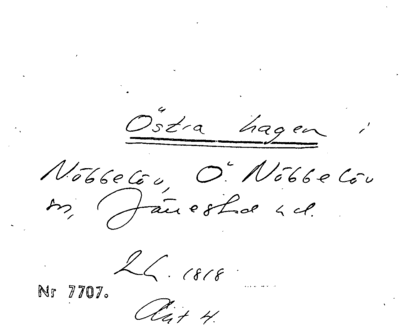 Östra hagen i
Nöbbelöv, Ö. Nöbbelöv
sn, Järrestad hd.
Lh. 1818
Nr 7707.
Akt 4.